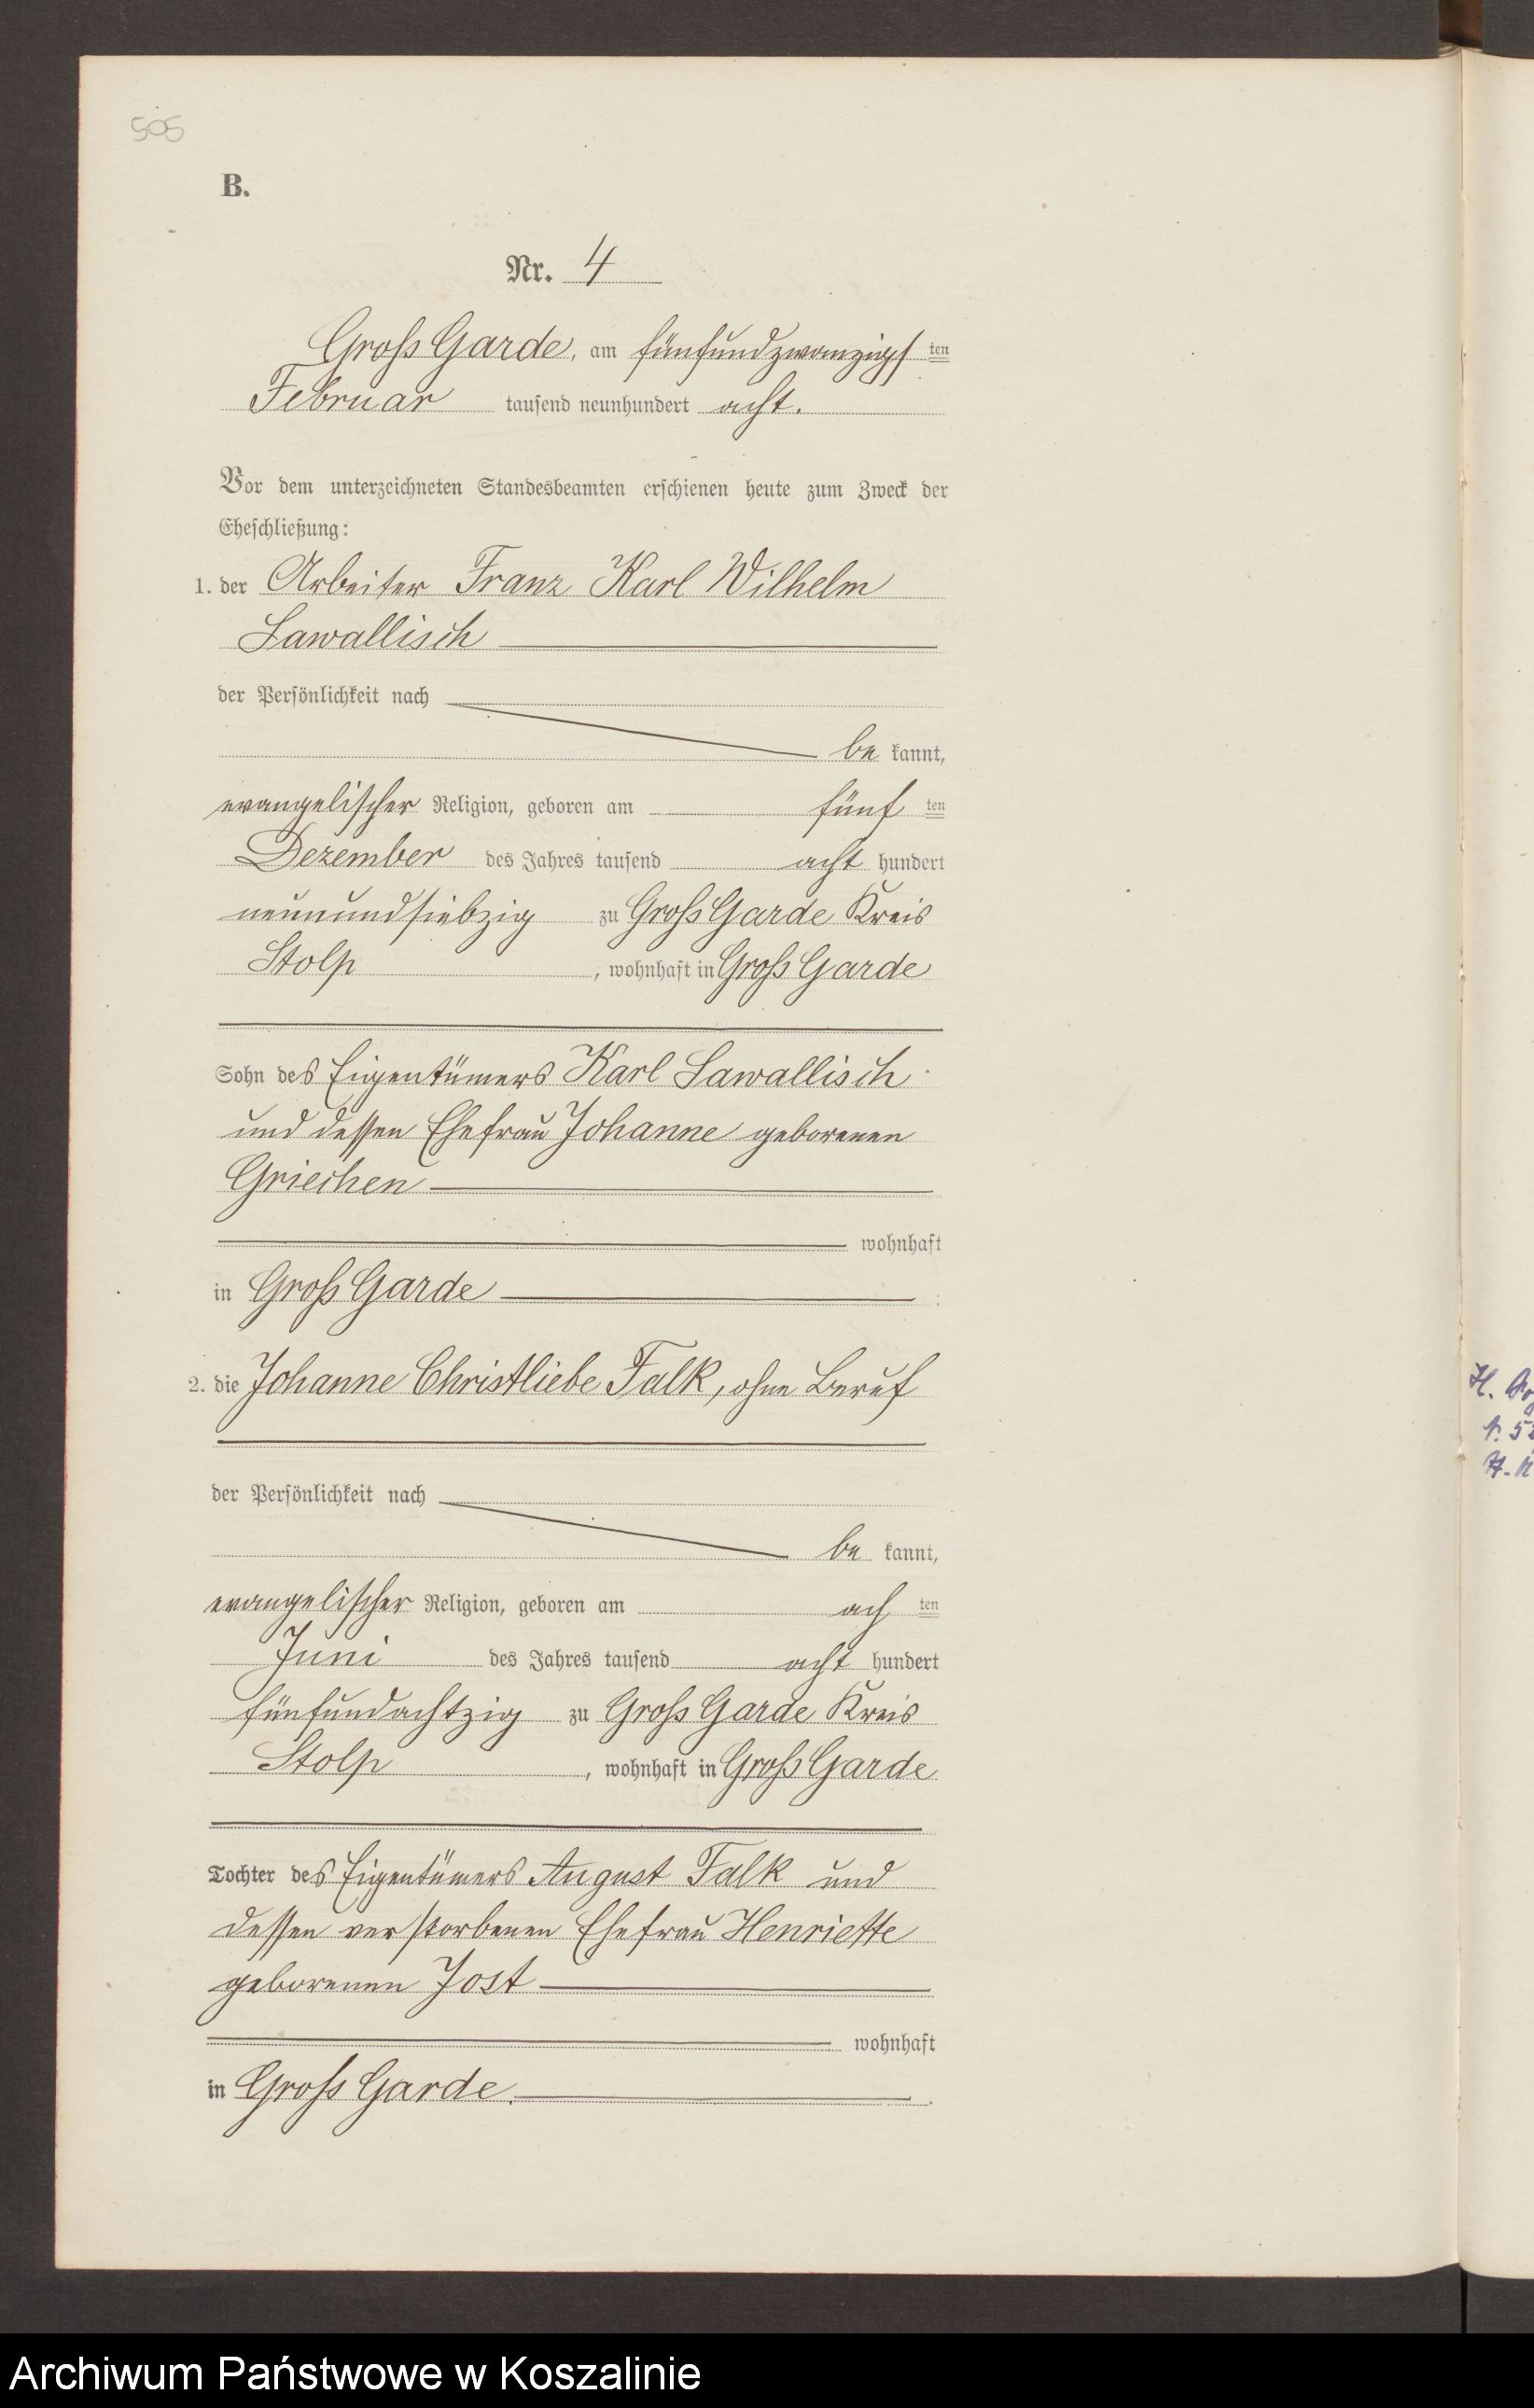 505
B.
Nr. 4
Groß Garde, am fünfundzwanzigsten
Februar tausend neunhundert acht.
Vor dem unterzeichneten Standesbeamten erschienen heute zum Zweck der
Eheschließung:
1. der Arbeiter Franz Karl Wilhelm
Sawallisch
der Persönlichkeit nach
be kannt,
evangelischer Religion, geboren am fünf ten
Dezember des Jahres tausend acht hundert
neunundsiebzig zu Groß Garde Kreis
Stolp, wohnhaft in Groß Garde
Sohn des Eigentümers Karl Sawallisch
und dessen Ehefrau Johanne geborenen
Griechen
wohnhaft
in Groß Garde
2. die Johanne Christliebe Falk, ohne Beruf
der Persönlichkeit nach
be kannt,
evangelischer Religion, geboren am ach ten
Juni des Jahres tausend acht hundert
fünfundachtzig zu Groß Garde Kreis
Stolp, wohnhaft in Groß Garde
Tochter des Eigentümers August Falk und
dessen verstorbenen Ehefrau Henriette
geborenen Jost
wohnhaft
in Groß Garde.
Archiwum Państwowe w Koszalinie